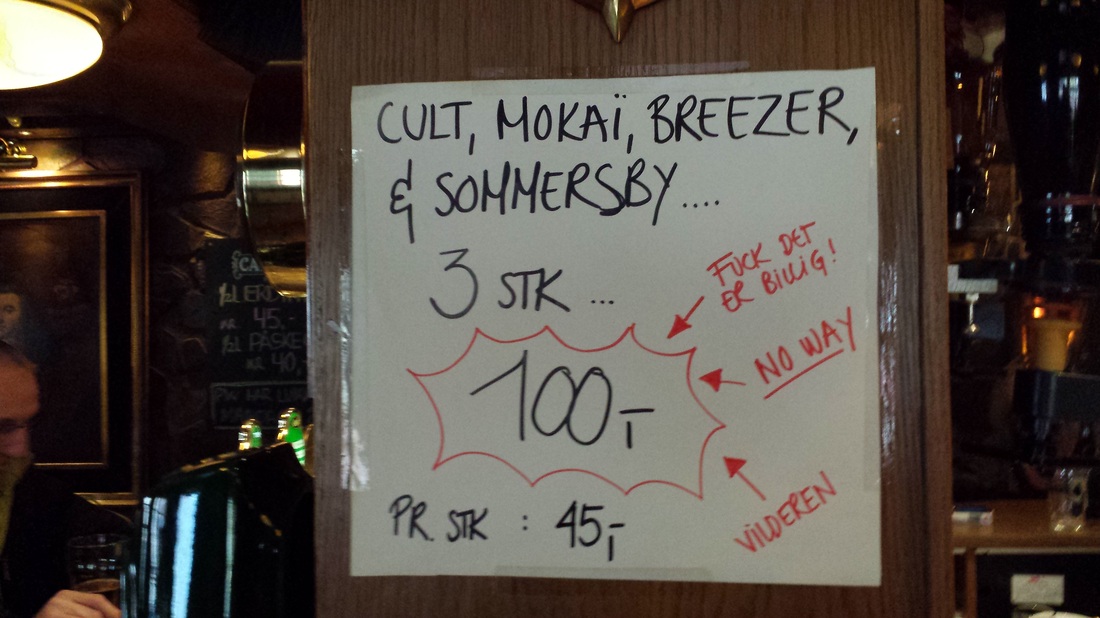 CULT, MOKAÏ, BREEZER,
& SOMMERSBY....
3 STK ...
100,-
PR. STK : 45,-
FUCK DET
ER BILLIG!
NO WAY
VILDEREN
45,-
1/2L PÅSKE
KR 40,